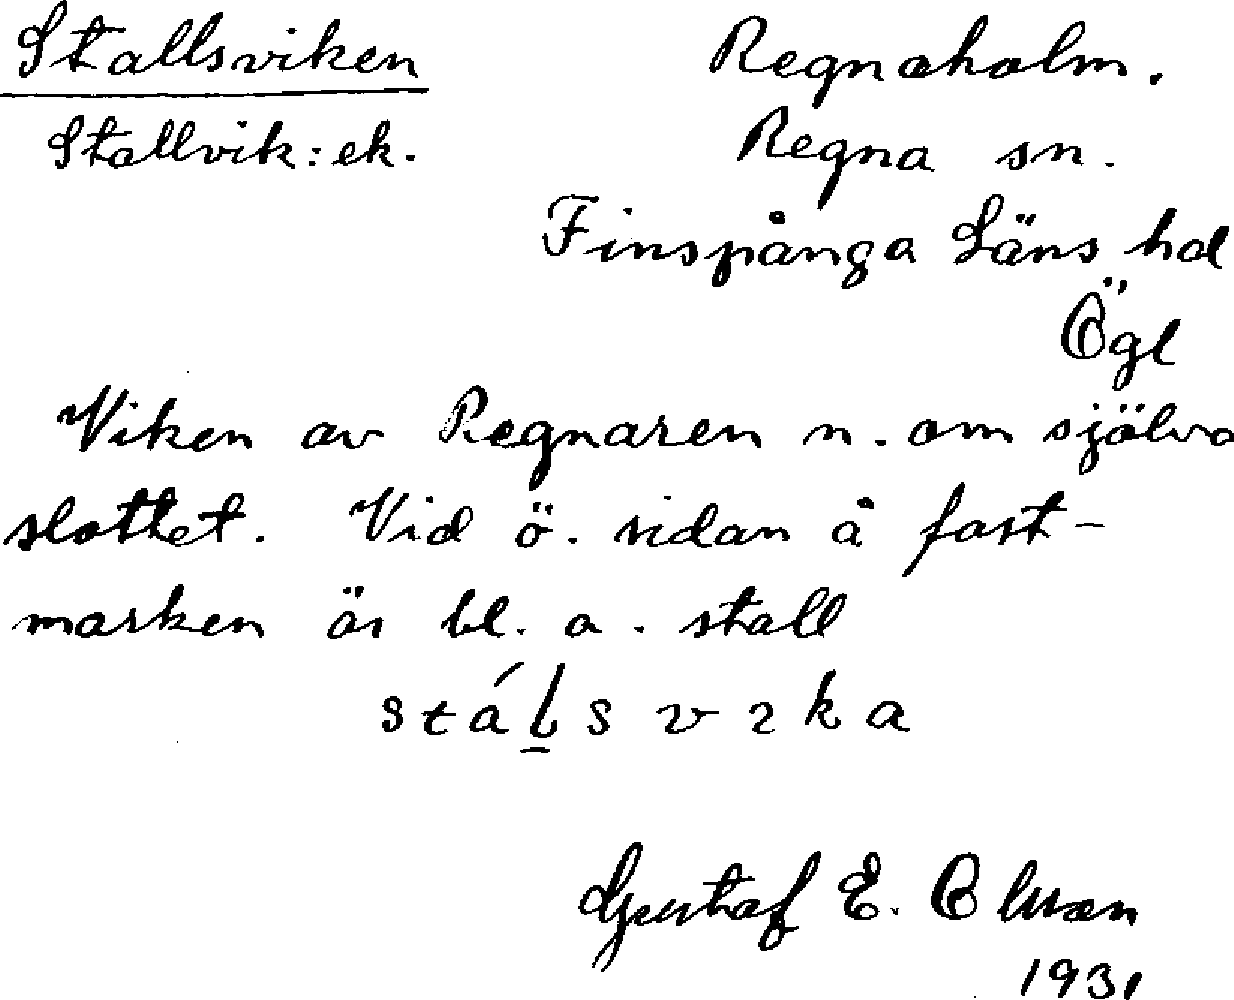 Stallsviken
Stallvik: ek.
Regnaholm.
Regna sn.
Finspånga Läns hd
Ögl
Viken av Regnaren n. om själva
slottet. Vid ö. sidan å fast-
marken är bl. a. stall
stálsvıka
Gustaf E. Olsson
1931